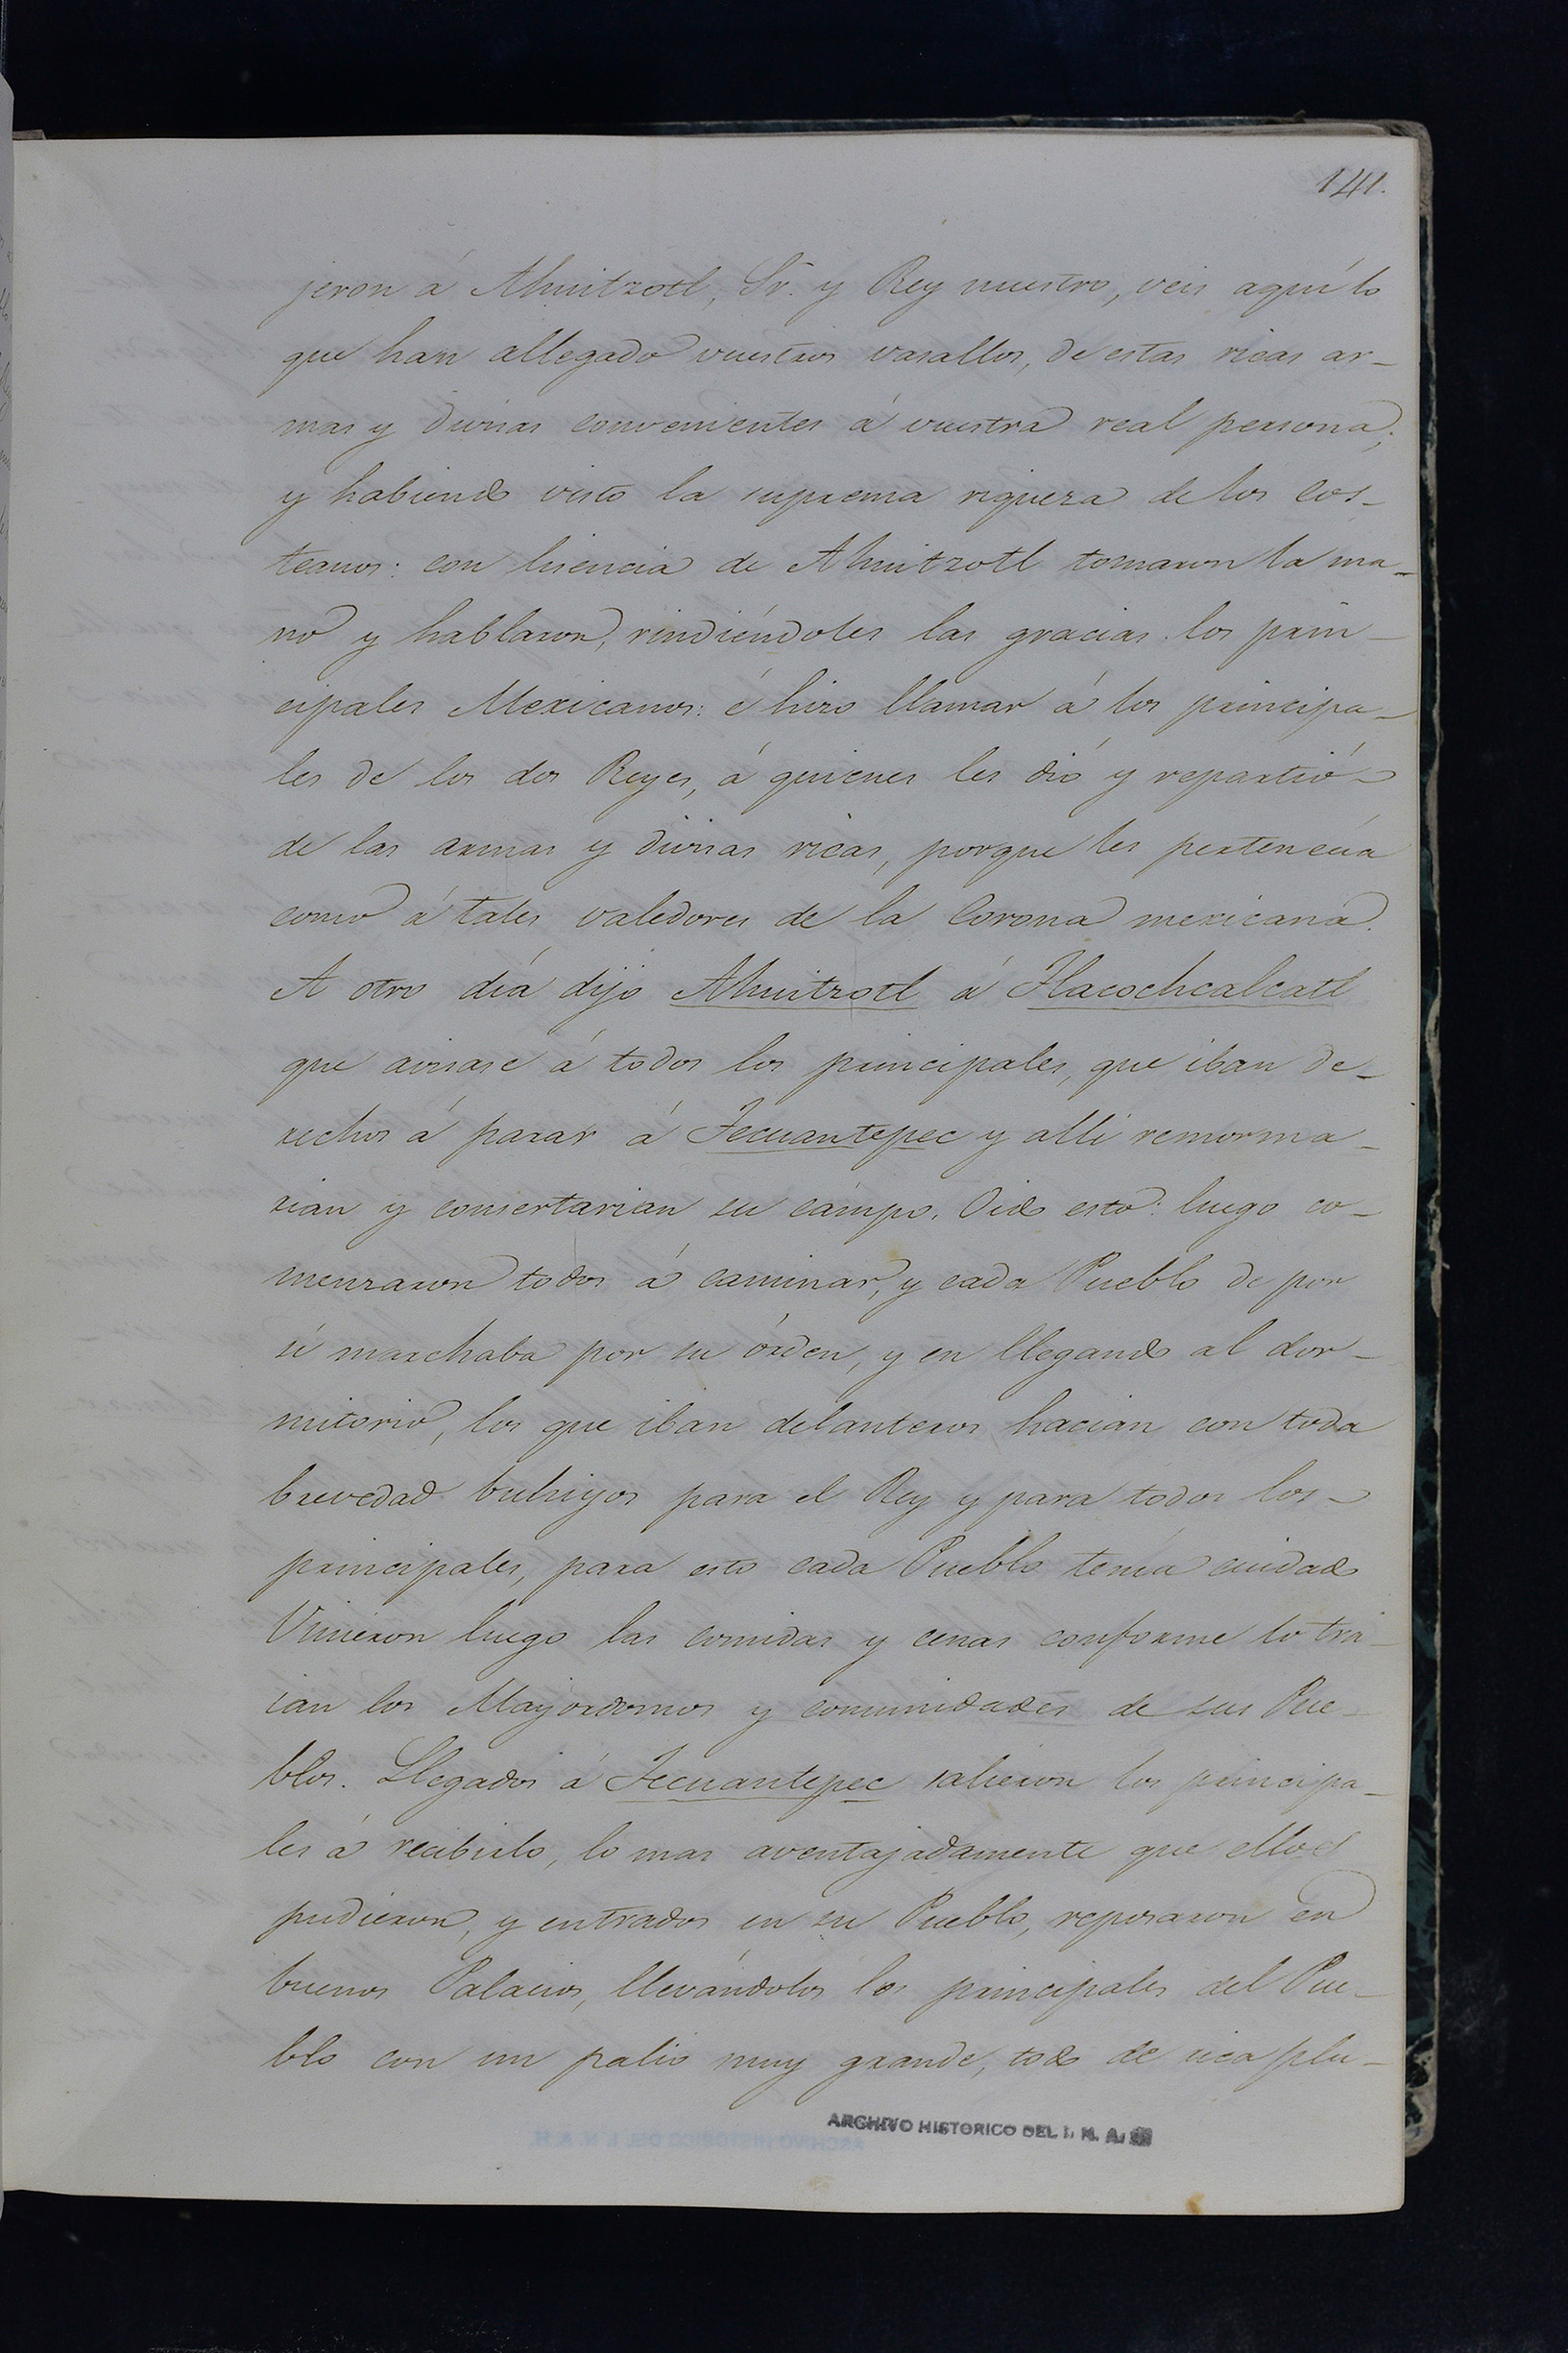 141.
jeron á Ahuitzotl, Sr. y Rey nuestro, veis aquí lo
que han allegado vuestros vasallos, de estas ricas ar-
mas y divisas convenientes á vuestra real persona;
y habiendo visto la suprema riqueza de los cos-
teanos: con licencia de Ahuitzotl tomaron la ma-
no y hablaron, rindiéndoles las gracias los prin-
cipales Mexicanos: é hizo llamar á los principa-
les de los dos Reyes, á quienes les dió y repartió
de las armas y divisas ricas, porque les pertenecía
como á tales valedores de la Corona mexicana.
A otro día dijo Ahuitzotl á Tlacochcalcatl
que avisase á todos los principales, que iban de-
rechos á parar á Tecuantepec y alli remorma-
rian y consertarian su campo. Oido esto: luego co-
menzaron todos á caminar, y cada Pueblo de por
sí marchaba por su órden, y en llegando al dor-
mitorio, los que iban delanteros hacian con toda
brevedad buhiyos para el Rey y para todos los
principales, para esto cada Pueblo tenía cuidado
Vinieron luego las comidas y cenas conforme lo tra-
ian los Mayordomos y comunidades de sus Pue-
blos. Llegados á Tecuantepec salieron los principa-
les á recibirlo, lo mas aventajadamente que ellos
pudieron, y entrados en su Pueblo, reposaron en
buenos Palacios, llevándolos los principales del Pue-
blo con un palio muy grande, todo de rica plu-
ARCHIVO HISTORICO DEL I. N. A. H.